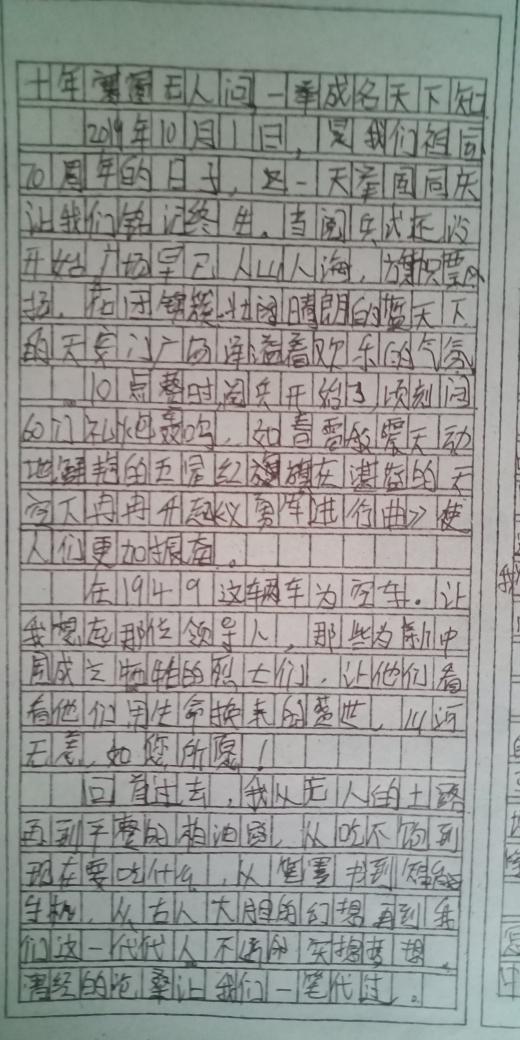 十年寒窗无人问,一举成名天下知
2019年10月1日,是我们祖国
70周年的日子,这一天举国同庆
让我们铭记终生。当阅兵式还没
开始广场早已人山人海,旗帜飘
扬,花团锦簇,壮阔晴朗的蓝天下
的天安门广场洋溢着欢乐的气氛
10点整时,阅兵开始了,顷刻间
60门礼炮轰鸣,如春雷般震天动
地鲜艳的五星红旗在湛蓝的天
空下冉冉升起《义勇军进行曲》使
人们更加振奋。
在1949这辆车为空车。让
我想起那位领导人,那些为新中
国成立牺牲的烈士们,让他们看
看他们用生命换来的盛世,山河
无恙,如您所愿!
回首过去,我从无人的土路
再到平整的柏油路,从吃不饱到
现在要吃什么,从笔书到智能
手机,从古人大胆的幻想再到我
们这一代代人不断的实 梦想
曾经的沧桑让我们一笔代过。